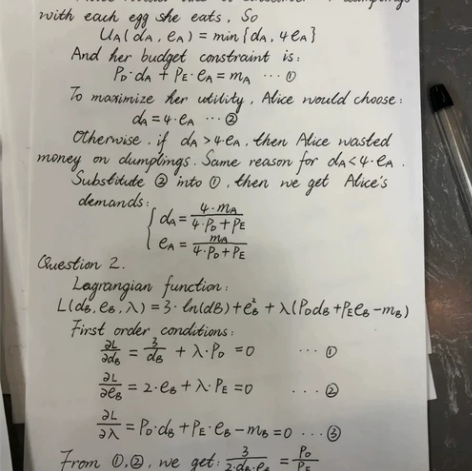 with each egg she eats, So
U_A(d_A, e_A) = min{d_A, 4e_A}
And her budget constraint is:
P_D·d_A + P_E·e_A = m_A ··· ①
To maximize her utility, Alice would choose:
d_A = 4·e_A ··· ②
Otherwise, if d_A > 4·e_A, then Alice wasted
money on dumplings. Same reason for d_A < 4·e_A.
Substitute ② into ①, then we get Alice's
demands:
{ d_A = 4·m_A / (4·P_D + P_E)
e_A = m_A / (4·P_D + P_E)
Question 2.
Lagrangian function:
L(d_B, e_B, λ) = 3·ln(dB) + e_B^2 + λ(P_D d_B + P_E e_B − m_B)
First order conditions:
∂L/∂d_B = 3/d_B + λ·P_D = 0 ··· ①
∂L/∂e_B = 2·e_B + λ·P_E = 0 ··· ②
∂L/∂λ = P_D·d_B + P_E·e_B − m_B = 0 ··· ③
From ①,②, we get: 3/(2·d_B·e_B) = P_D/P_E